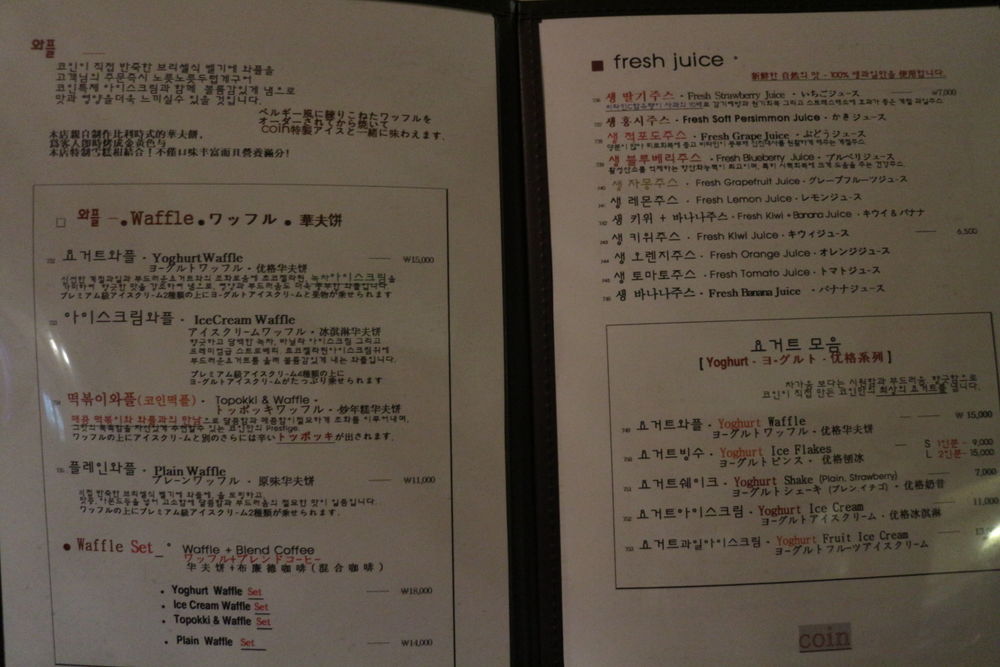 와플
코인이 직접 반죽한 브리셀식 벨기에 와플을
고객님의 주문즉시 노릇노릇두껍게구어
코인특제 아이스크림과 함께 볼륨감있게 냄으로
맛과 영양을더욱 느끼실수 있을 것입니다.
ベルギー風に練りこねたワッフルを
オーダーされてから焼いて
coin特製アイスと一緒に味わえます.
本店親自制作比利時式的華夫餠,
爲客人卽時烤成金黃色与
本店特制雪糕相結合！不僅口味丰富而且營養滿分!
□ 와플 - •Waffle•ワッフル • 華夫饼
요거트와플 • Yoghurt Waffle ₩15,000
ヨーグルトワッフル • 优格华夫饼
プレミアム級アイスクリーム2種類の上にヨーグルトアイスクリームと果物が乗せられます
아이스크림와플 • IceCream Waffle
アイスクリームワッフル • 冰淇淋华夫饼
향긋하고 담백한 녹차, 바닐라 아이스크림 그리고
프레미엄급 스트로베리, 초코젤라원아이스크림위에
부드러운요거트를 올려 볼륨감있게 내는 와플입니다.
プレミアム級アイスクリーム4種類の上に
ヨーグルトアイスクリームがたっぷり乗せられます
떡볶이와플(코인떡플) • Topokki & Waffle •
トッポッキワッフル • 炒年糕华夫饼
매콤 떡볶이와 와플과의 만남으로 달콤함과 매콤함이절묘하게 조화를 이루어내며,
ワッフルの上にアイスクリームと別のさらには辛いトッポッキが出されます.
플레인와플 • Plain Waffle ₩11,000
プレーンワッフル • 原味华夫饼
직접 반죽한 브리셀식 벨기에 와플에, 꿀 토핑하고
ワッフルの上にプレミアム級アイスクリーム2種類が乗せられます.
● Waffle Set_ • Waffle + Blend Coffee
ワッフル+ブレンドコーヒー
华夫饼+布廉德咖啡(混合咖啡)
• Yoghurt Waffle Set ₩18,000
• Ice Cream Waffle Set
• Topokki & Waffle Set
• Plain Waffle Set ₩14,000
■ fresh juice •
新鮮한 自然의 맛 - 100% 생과일만을 使用합니다.
생 딸기주스 • Fresh Strawberry Juice • いちごジュース ₩7,000
생 홍시주스 • Fresh Soft Persimmon Juice • かきジュース
생 적포도주스 • Fresh Grape Juice • ぶどうジュース
생 블루베리주스 • Fresh Blueberry Juice • ブルベリジュース
생 자몽주스 • Fresh Grapefruit Juice • グレープフルーツジュース
생 레몬주스 • Fresh Lemon Juice • レモンジュース
생 키위 + 바나나주스 • Fresh Kiwi + Banana Juice • キウイ & バナナ
생 키위주스 • Fresh Kiwi Juice • キウィジュース 6,500
생 오렌지주스 • Fresh Orange Juice • オレンジジュース
생 토마토주스 • Fresh Tomato Juice • トマトジュース
생 바나나주스 • Fresh Banana Juice • バナナジュース
요거트 모음
[ Yoghurt • ヨーグルト • 优格系列 ]
차가움 보다는 시원함과 부드러움, 향긋함으로
코인이 직접 만든 코인만의 최상의 요거트를 냅니다.
요거트와플 • Yoghurt Waffle ₩ 15,000
ヨーグルトワッフル • 优格华夫饼
요거트빙수 • Yoghurt Ice Flakes S 1인분 - 9,000
ヨーグルトピンス • 优格刨冰 L 2인분 - 15,000
요거트쉐이크 • Yoghurt Shake (Plain, Strawberry) 7,000
ヨーグルトシェーキ (プレン,イチゴ) • 优格奶昔
요거트아이스크림 • Yoghurt Ice Cream 11,000
ヨーグルトアイスクリーム • 优格冰淇淋
요거트과일아이스크림 • Yoghurt Fruit Ice Cream
ヨーグルトフルーツアイスクリーム
coin